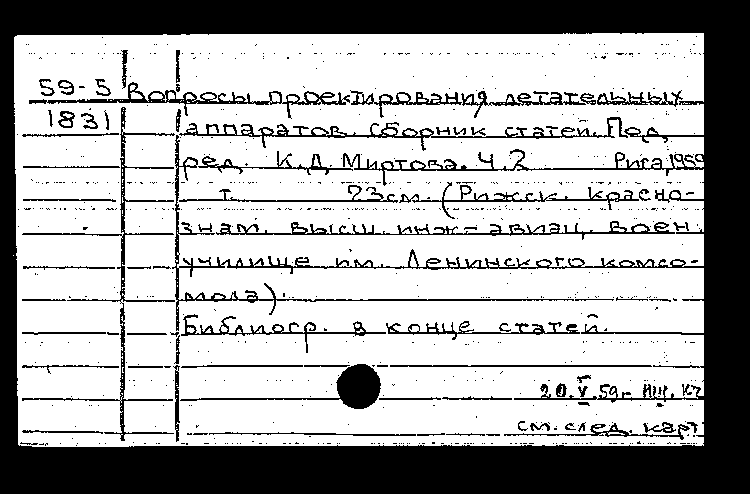 59-5 Вопросы проектирования летательных
1831 аппаратов. Сборник статей. Под
ред. К.Д. Миртова. Ч. 2 Рига, 1959
т. 23см. (Рижск. красно-
знам. высш. инж-авиац. воен.
училище им. Ленинского комсо-
мола).
Библиогр. в конце статей.
20.V.59
см. след. карт